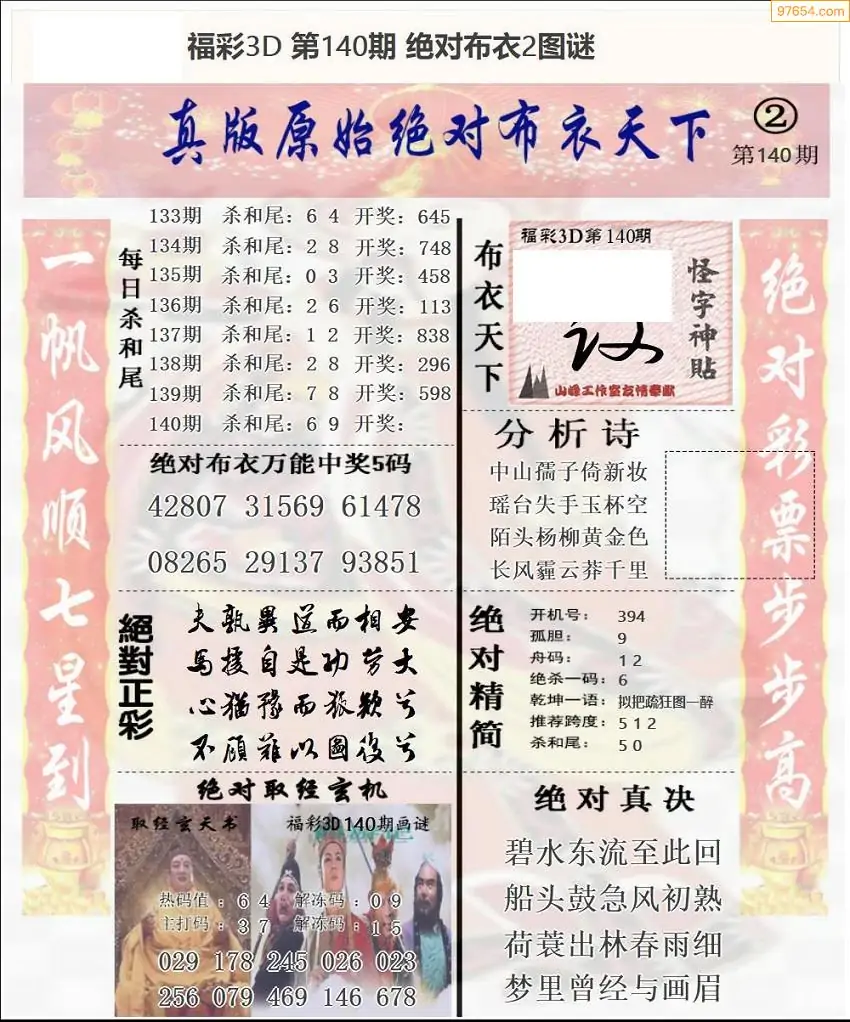 97654.com
福彩3D 第140期 绝对布衣2图谜
真版原始绝对布衣天下
②
第140期
一帆风顺七星到
每日杀和尾
133期 杀和尾：6 4 开奖：645
134期 杀和尾：2 8 开奖：748
135期 杀和尾：0 3 开奖：458
136期 杀和尾：2 6 开奖：113
137期 杀和尾：1 2 开奖：838
138期 杀和尾：2 8 开奖：296
139期 杀和尾：7 8 开奖：598
140期 杀和尾：6 9 开奖：
绝对布衣万能中奖5码
42807 31569 61478
08265 29137 93851
絕對正彩
夫孰異道而相安
馬援自是功劳大
心猶豫而狐疑兮
不顧難以圖後兮
绝对取经玄机
取经玄天书
福彩3D140期画谜
热码值：6 4 解冻码：0 9
主打码：3 7 解冻码：1 5
029 178 245 026 023
256 079 469 146 678
布衣天下
福彩3D第140期
怪字神貼
山峰工作室友情奉献
分析诗
中山孺子倚新妆
瑶台失手玉杯空
陌头杨柳黄金色
长风霾云莽千里
绝对精简
开机号： 394
孤胆： 9
舟码： 1 2
绝杀一码：6
乾坤一语：拟把疏狂图一醉
推荐跨度：5 1 2
杀和尾： 5 0
绝对真决
碧水东流至此回
船头鼓急风初熟
荷蓑出林春雨细
梦里曾经与画眉
绝对彩票步步高